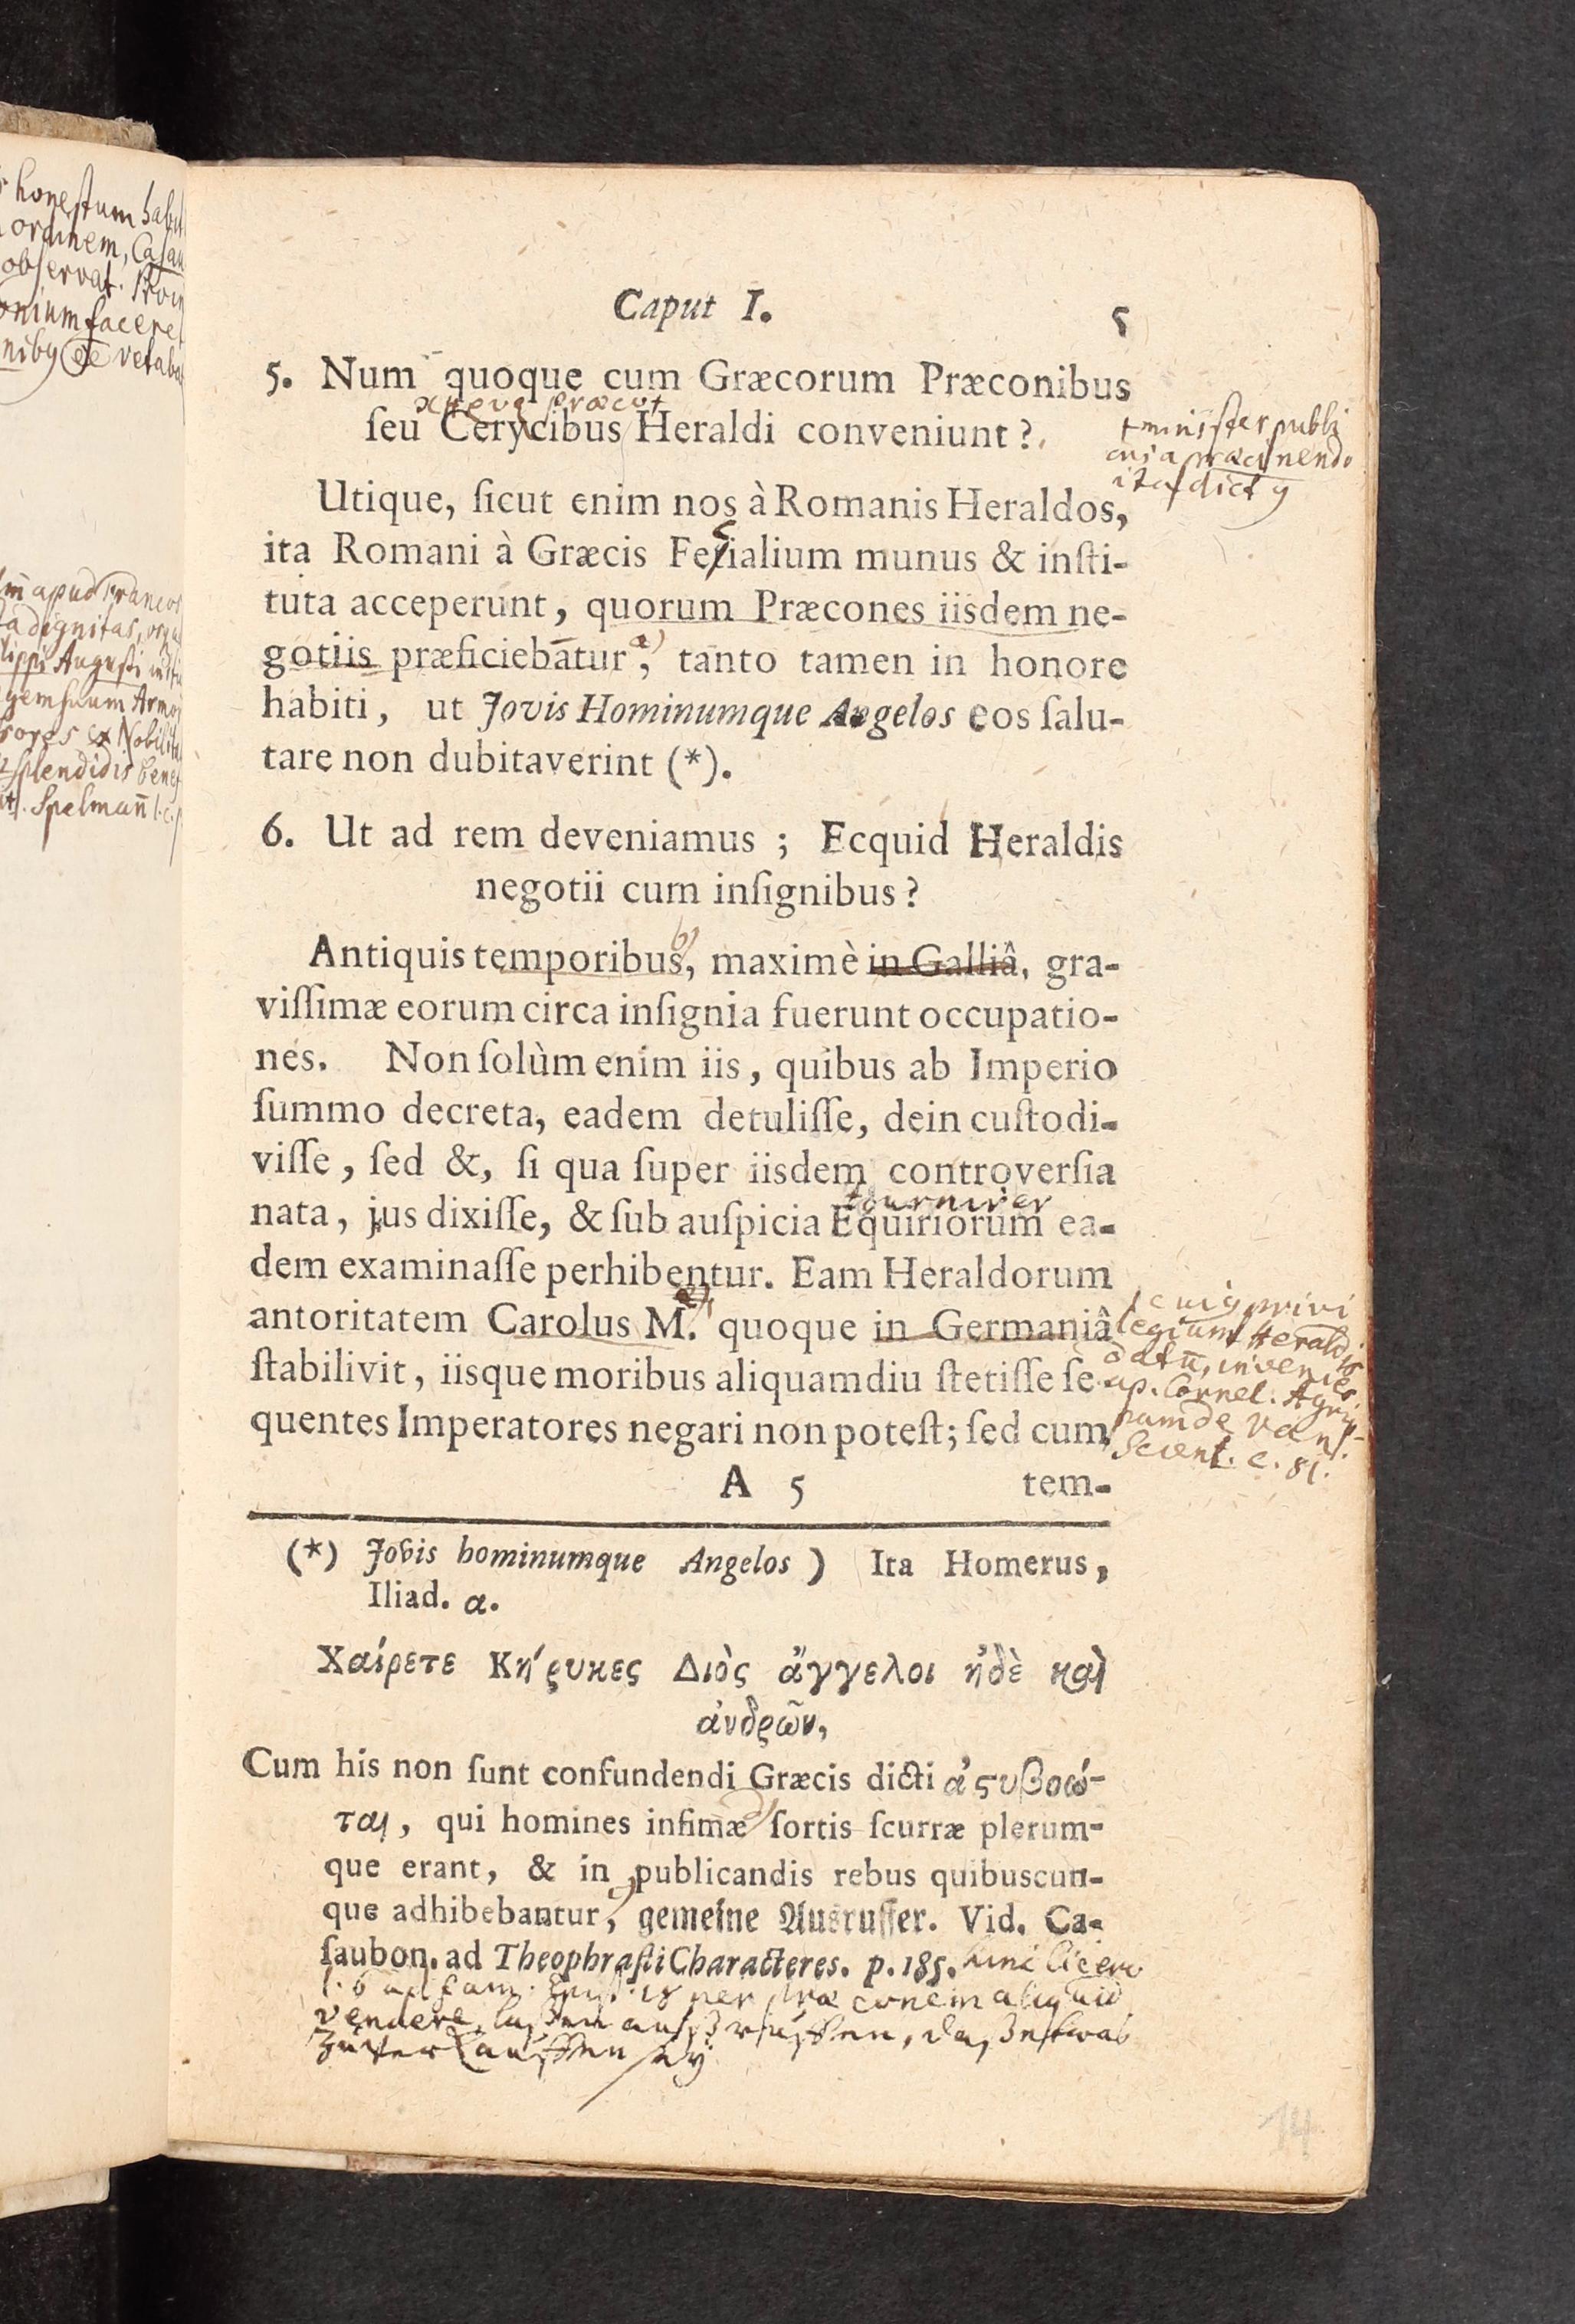 honestum habit
ordinem, Casau
observat.
onium facere
vetaba
apud Francos
dignitas,
lippi Augusti
gem suum
Nobilita
splendidis benef
Spelmañ l. c.
Caput I. 5
5. Num quoque cum Græcorum Præconibus
κηρυξ præco†
ſeu Cerycibus Heraldi conveniunt?
† minister publi
cus a præcinendo
ita dictꝰ
Utique, ſicut enim nos à Romanis Heraldos,
ita Romani à Græcis Feſialium munus & inſti-
tuta acceperunt, quorum Præcones iisdem ne-
gotiis præficiebantur a), tanto tamen in honore
habiti, ut Jovis Hominumque Angelos eos ſalu-
tare non dubitaverint (*).
6. Ut ad rem deveniamus ; Ecquid Heraldis
negotii cum inſignibus?
Antiquis temporibus b), maximè in Galliâ, gra-
viſſimæ eorum circa inſignia fuerunt occupatio-
nes. Non ſolùm enim iis, quibus ab Imperio
ſummo decreta, eadem detuliſſe, dein cuſtodi-
viſſe, ſed &, ſi qua ſuper iisdem controverſia
tournirer
nata, jus dixiſſe, & ſub auſpicia Equiriorum ea-
dem examinaſſe perhibentur. Eam Heraldorum
antoritatem Carolus M. quoque in Germaniâ
ſtabilivit, iisque moribus aliquamdiu ſtetiſſe ſe-
quentes Imperatores negari non poteſt; ſed cum
cuiꝰ privi
legium Heraldis
datū, invenies
ap. Cornel. Agrip
pam de Vanit.
Scient. c. 81.
A 5 tem-
(*) Jovis hominumque Angelos) Ita Homerus,
Iliad. α.
Χαίρετε Κήρυκες Διὸς ἄγγελοι ἠδὲ καὶ
ἀνδρῶν,
Cum his non ſunt confundendi Græcis dicti ἀϛυβοώ-
ται, qui homines infimæ ſortis ſcurræ plerum-
que erant, & in publicandis rebus quibuscun-
que adhibebantur, gemeine Ausruffer. Vid. Ca-
ſaubon. ad Theophraſti Characteres. p. 185. hinc Cicero
l. 6 ad fam. Epist. 18 per præconem aliquid
vendere, laßen außruffen, daß etwas
zu verkauffen sey
14